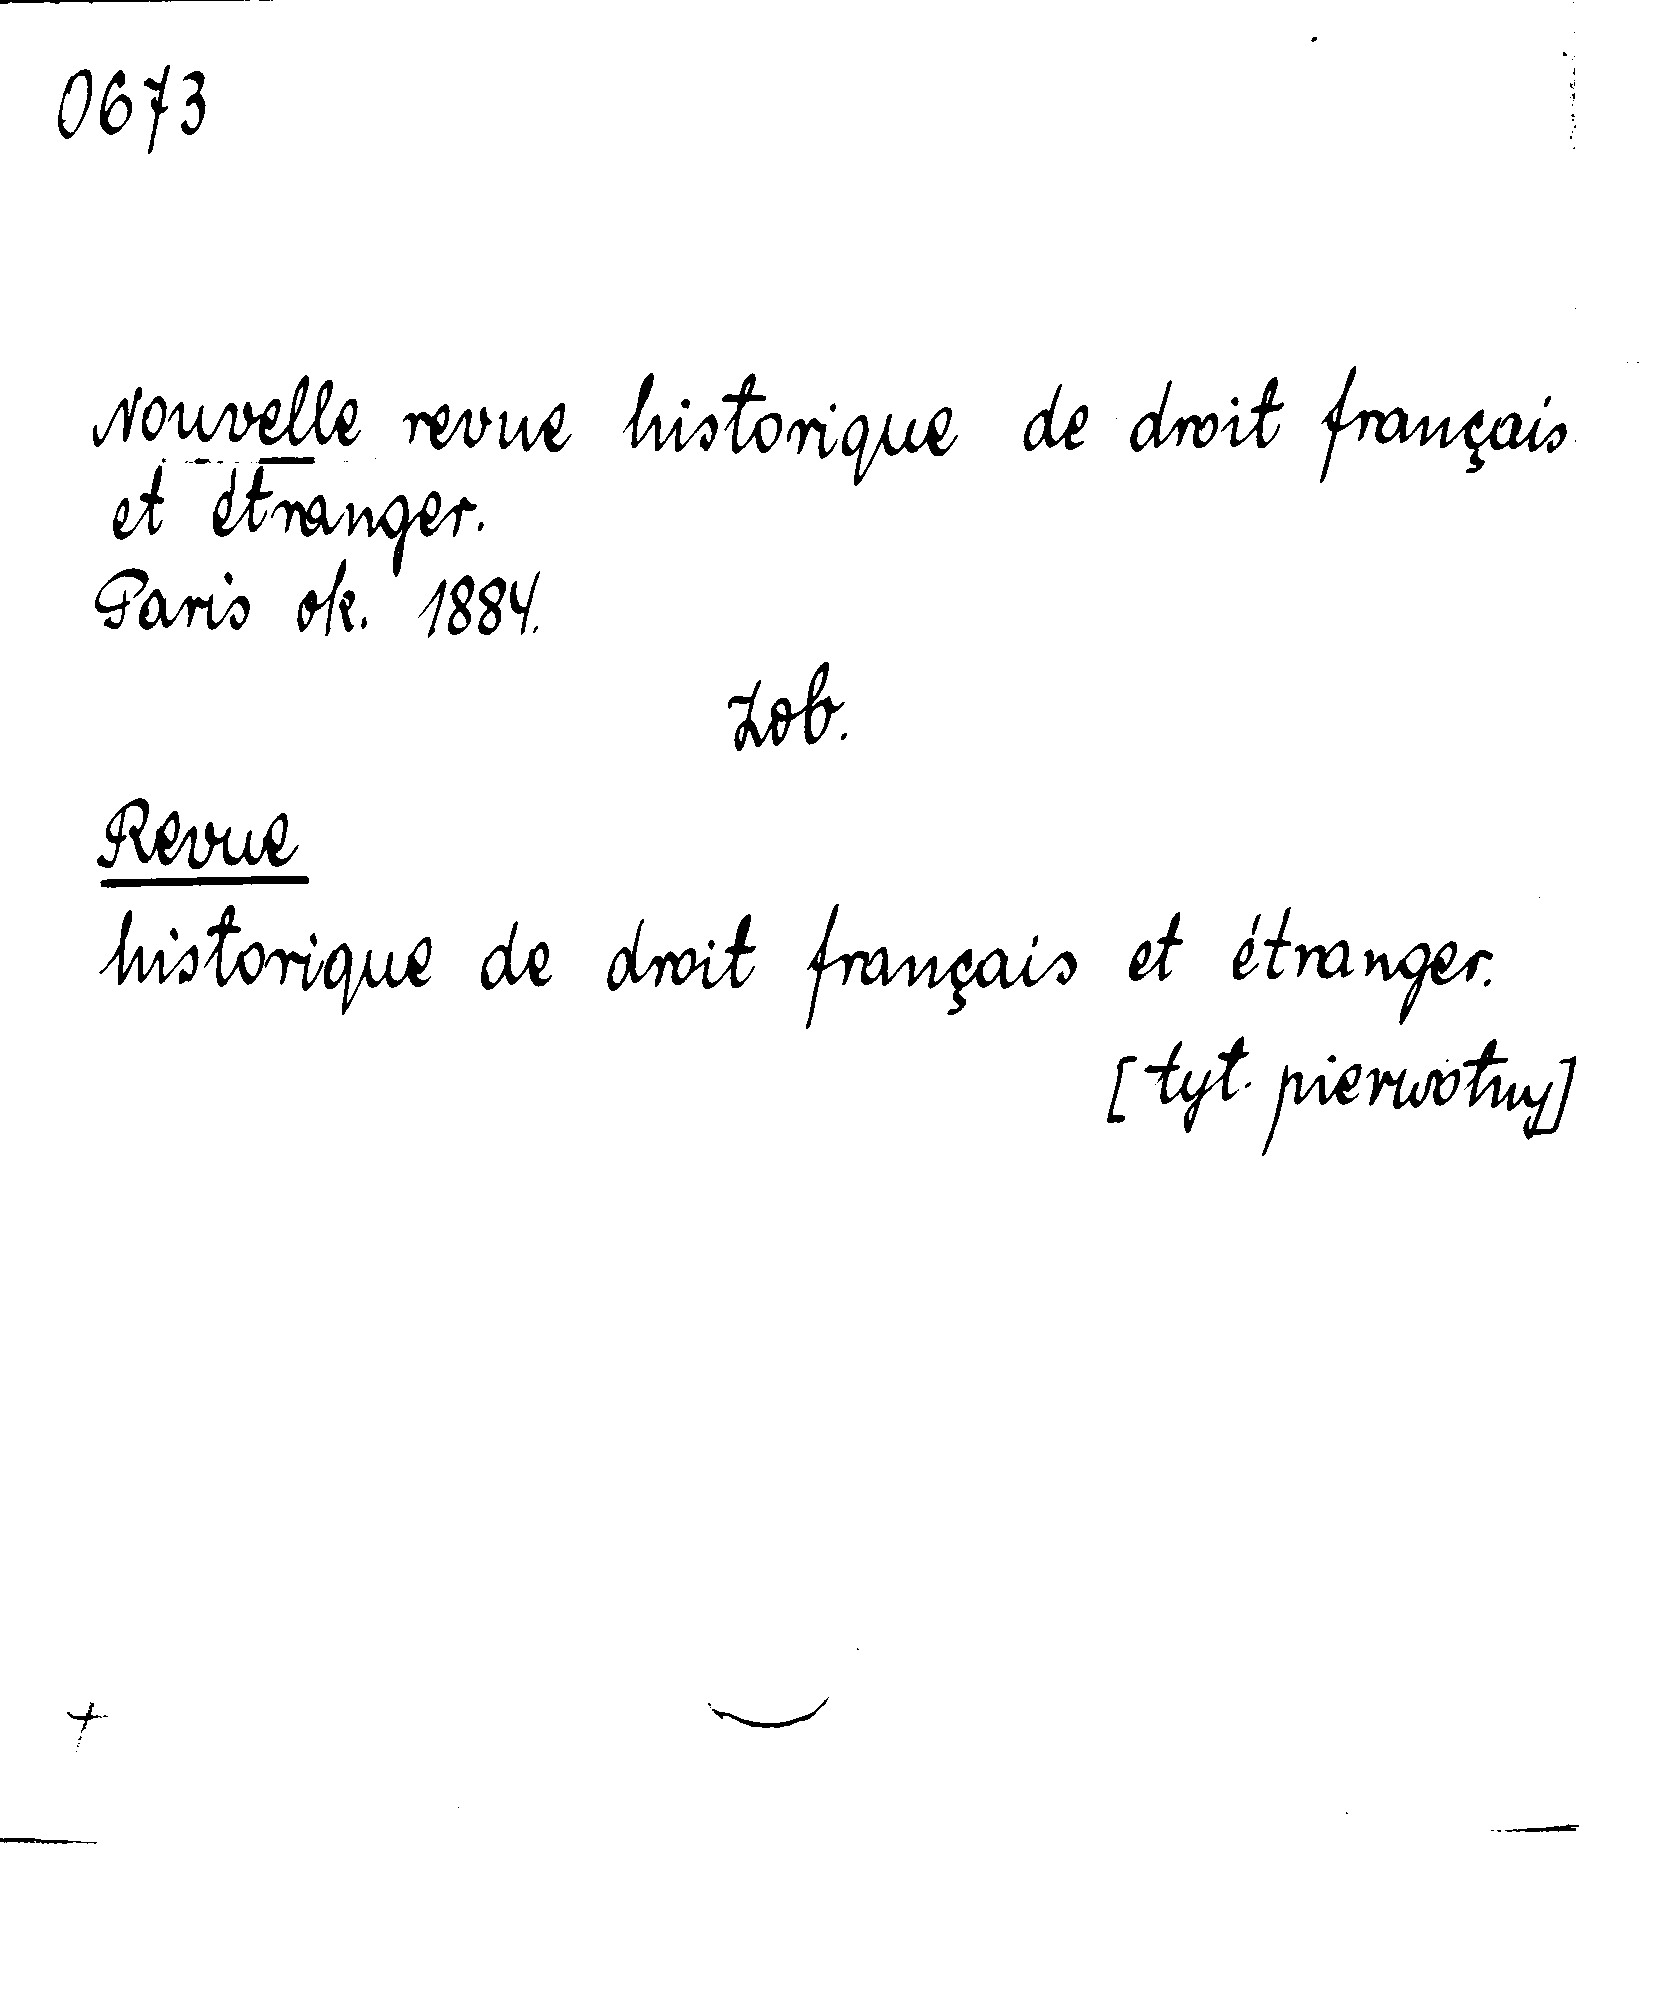 0673
Nouvelle revue historique de droit français
et étranger.
Paris ok. 1884.
Zob.
Revue
historique de droit français et étranger.
[tyt. pierwotny]